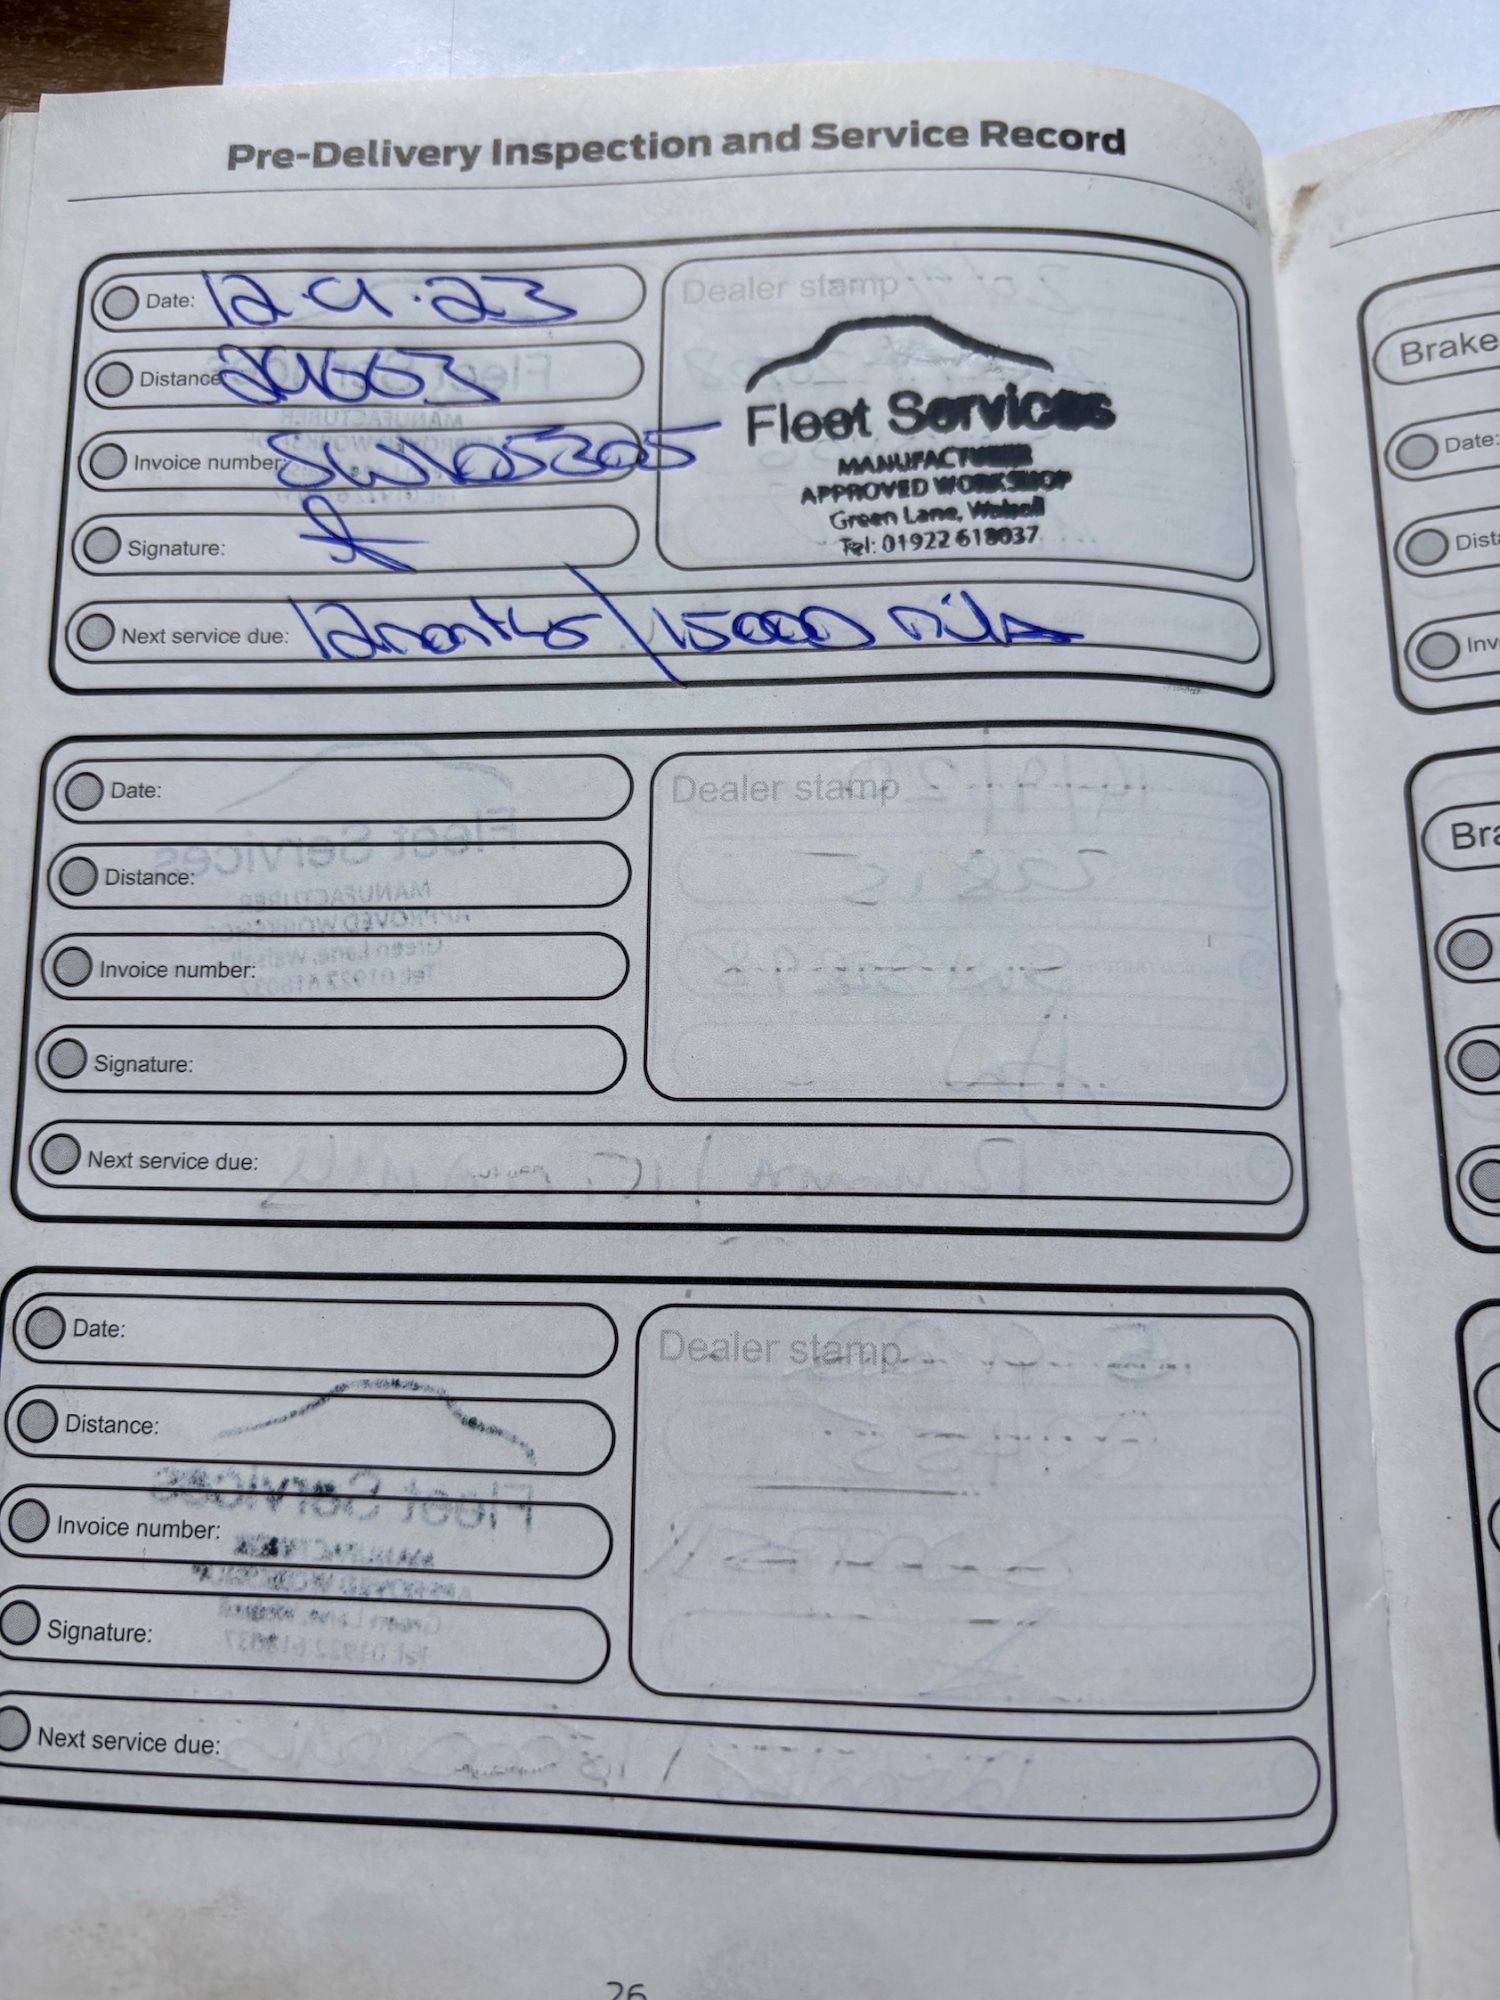 Pre-Delivery Inspection and Service Record
Date: 12.9.23
Distance 29663
Invoice number: SW105305
Signature:
Next service due: 12months / 15000 miles
Dealer stamp
Fleet Services
MANUFACTURER
APPROVED WORKSHOP
Green Lane, Walsall
Tel: 01922 618037
Date:
Distance:
Invoice number:
Signature:
Next service due:
Dealer stamp
Date:
Distance:
Invoice number:
Signature:
Next service due:
Dealer stamp
26
Brake
Date:
Dista
Inv
Bra